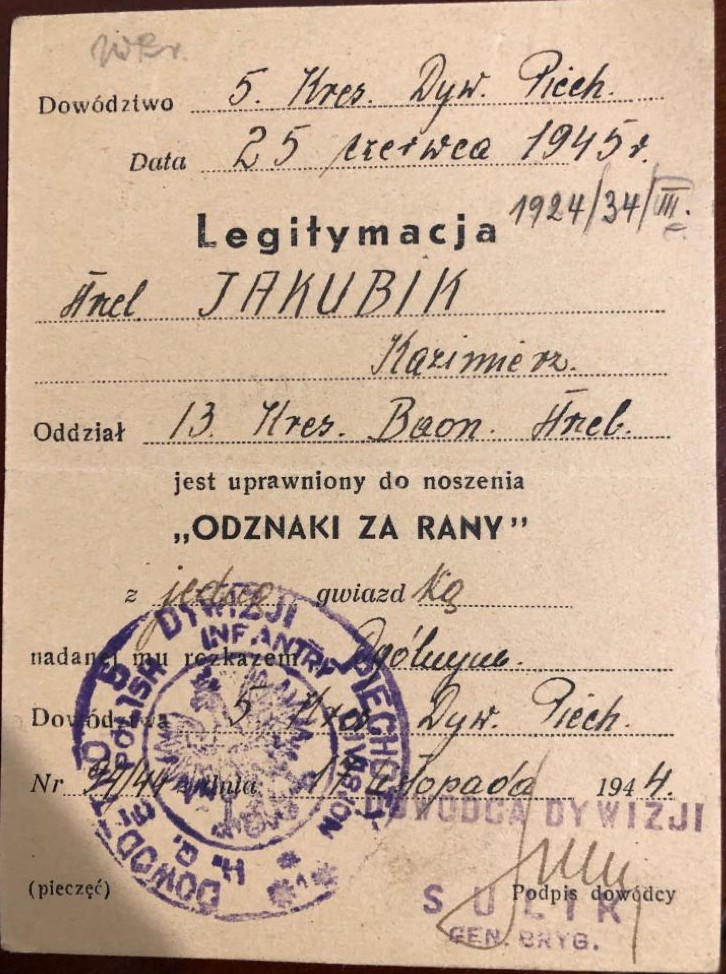 Dowództwo 5. Kres. Dyw. Piech.
Data 25 czerwca 1945r.
1924/34/III.
Legitymacja
Strzel JAKUBIK
Kazimierz.
Oddział 13. Kres. Baon. Strzel.
jest uprawniony do noszenia
„ODZNAKI ZA RANY”
z jedną gwiazd ką
nadanej mu rozkazem Ogólnym.
Dowództwa 5 Kres. Dyw. Piech.
Nr 94/44 z dnia 17 listopada 1944.
DOWÓDCA DYWIZJI
(pieczęć) Podpis dowódcy
SULIK
GEN. BRYG.
DOWÓDZTWO 5 DYWIZJI PIECHOTY
H.Q. 5 POLISH INFANTRY DIVISION